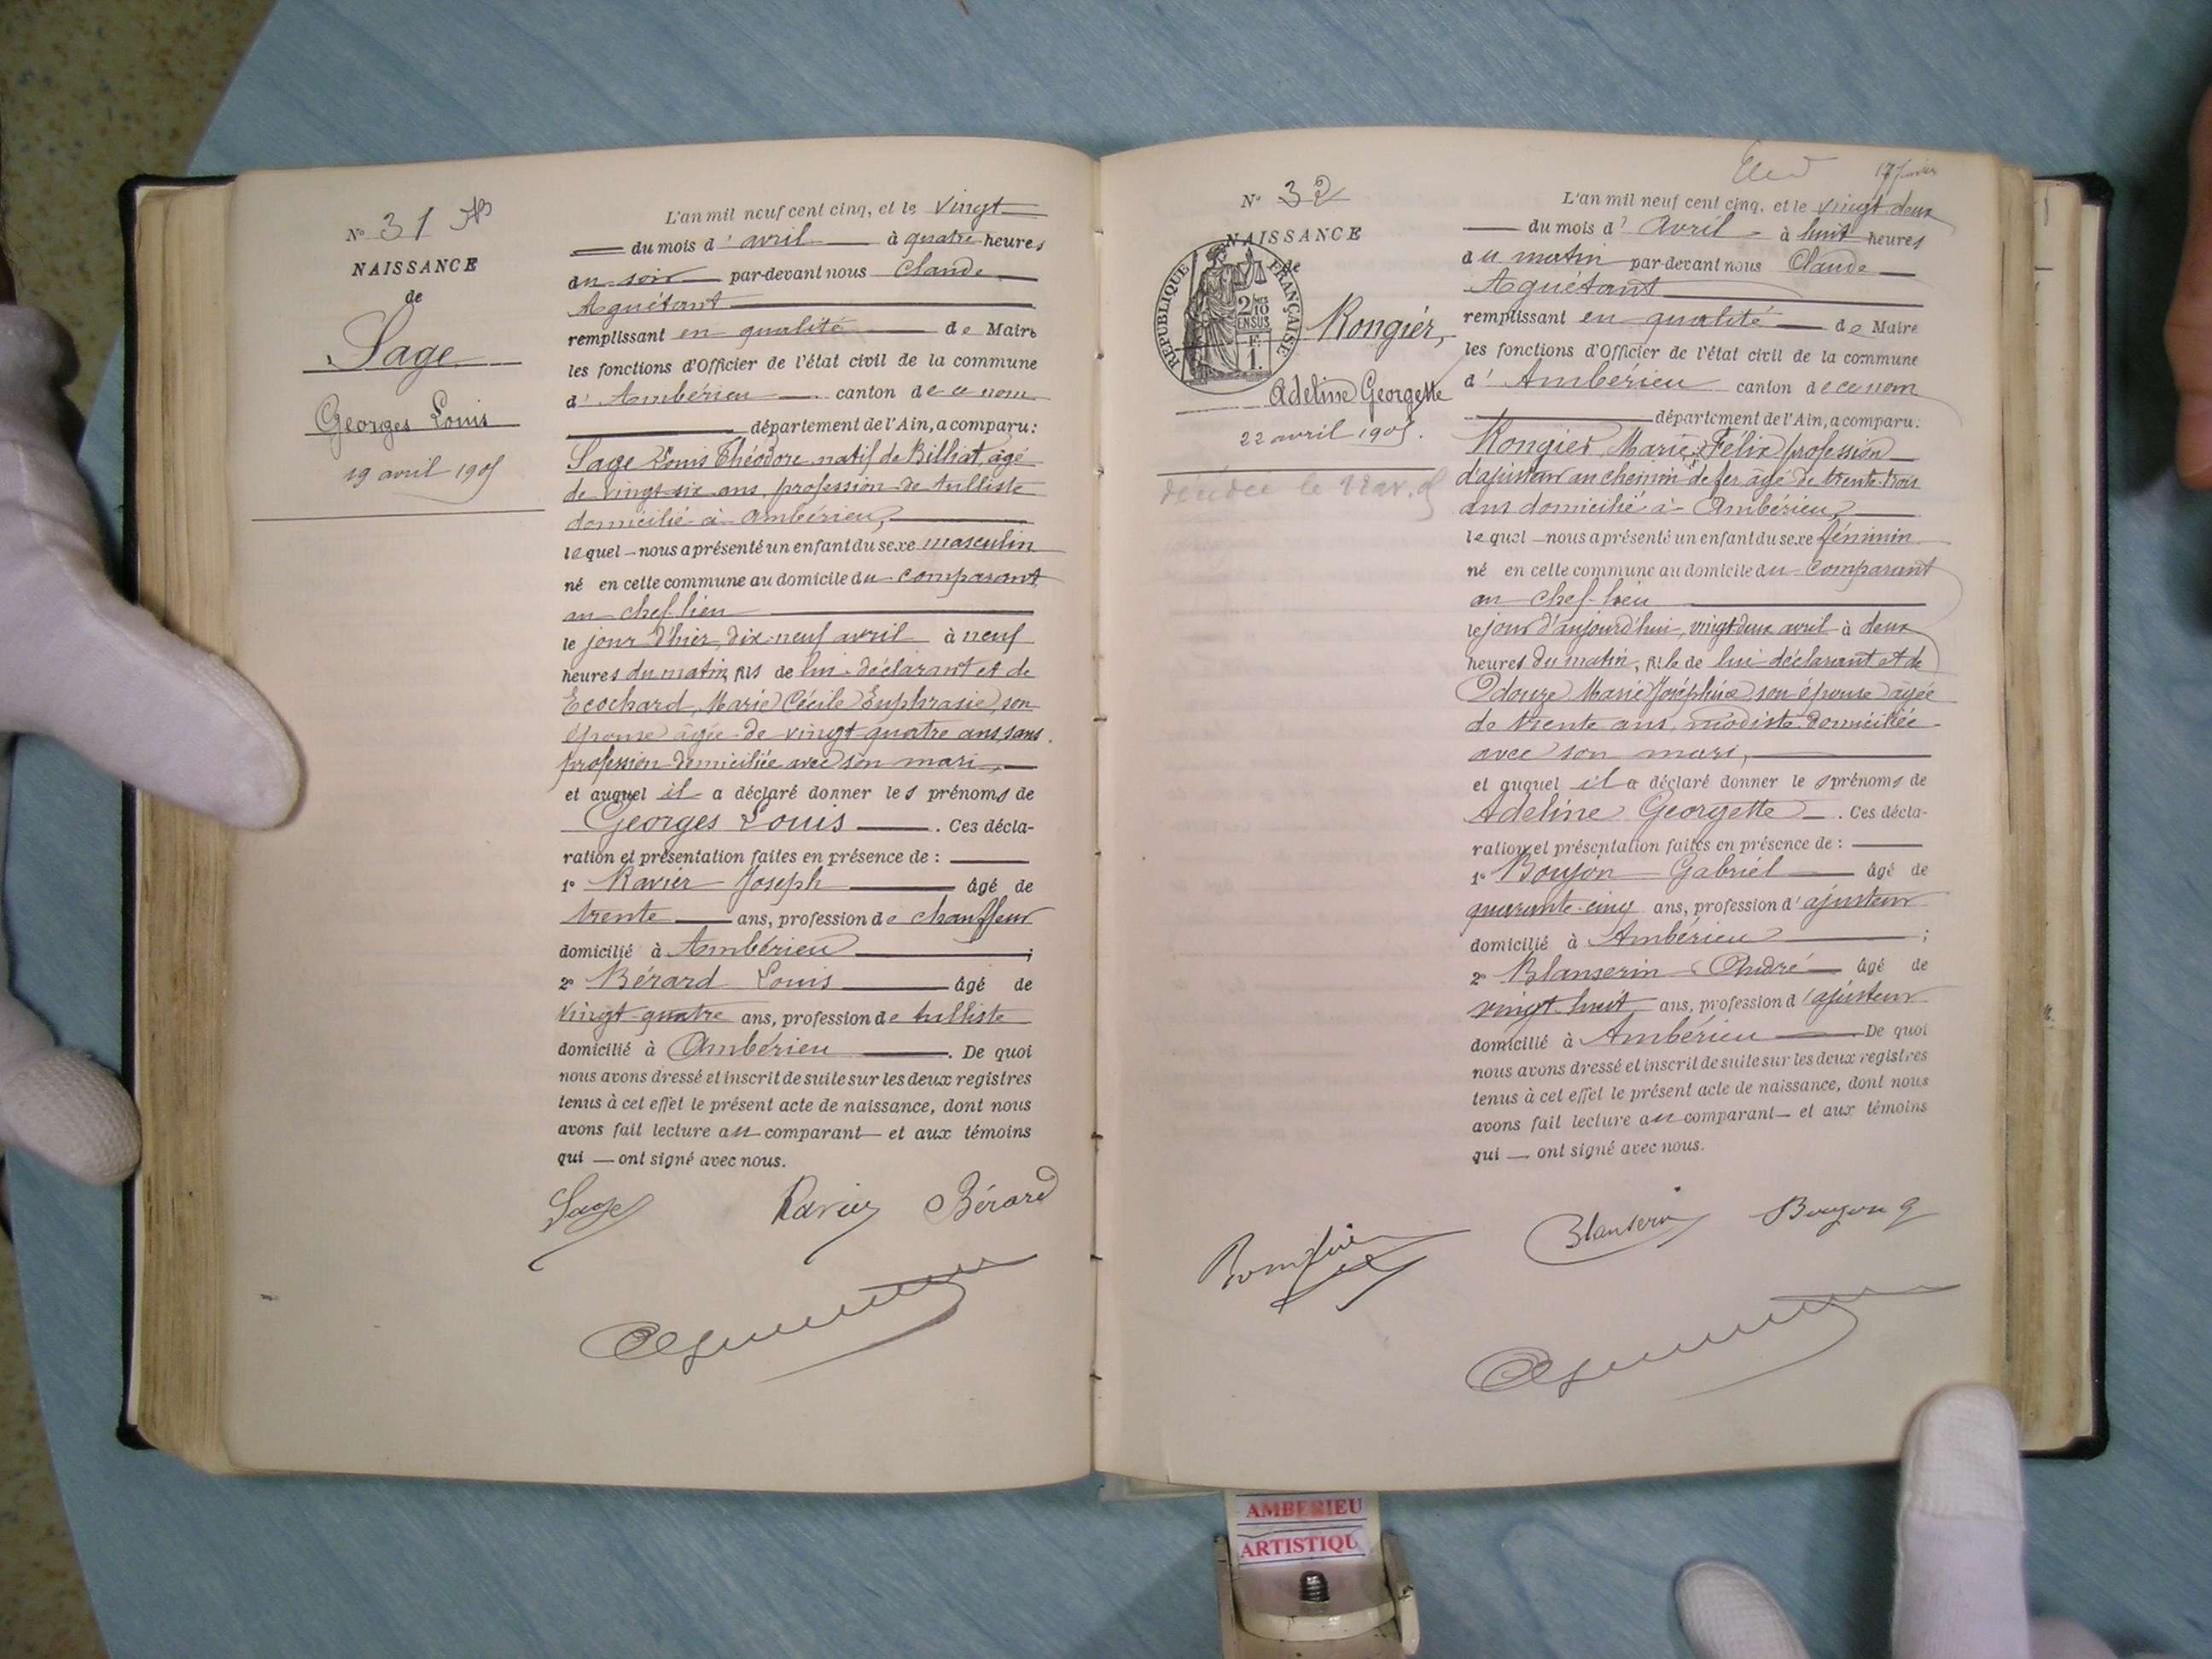 N° 31
NAISSANCE
de
Sage
Georges Louis
19 avril 1905
L'an mil neuf cent cinq, et le vingt
du mois d'avril à quatre heures
du soir par-devant nous Claude
Aguétant
remplissant en qualité de Maire
les fonctions d'Officier de l'état civil de la commune
d'Ambérieu canton de ce nom
département de l'Ain, a comparu:
Sage Louis Théodore natif de Billiat, âgé
de vingt-six ans, profession de tulliste
domicilié à Ambérieu,
lequel nous a présenté un enfant du sexe masculin
né en cette commune au domicile du comparant
au chef-lieu
le jour d'hier, dix-neuf avril à neuf
heures du matin, fils de lui déclarant et de
Ecochard, Marie Cécile Euphrasie, son
épouse âgée de vingt quatre ans, sans
profession domiciliée avec son mari,
et auquel il a déclaré donner les prénoms de
Georges Louis. Ces décla-
ration et présentation faites en présence de :
1° Ravier Joseph âgé de
trente ans, profession de chauffeur
domicilié à Ambérieu ;
2° Bérard Louis âgé de
vingt-quatre ans, profession de tulliste
domicilié à Ambérieu. De quoi
nous avons dressé et inscrit de suite sur les deux registres
tenus à cet effet le présent acte de naissance, dont nous
avons fait lecture au comparant et aux témoins
qui ont signé avec nous.
Sage Ravier Bérard
N° 32
NAISSANCE
de
REPUBLIQUE FRANÇAISE
2/10 EN SUS
F.
1.
Rongier,
Adeline Georgette
22 avril 1905.
décédée le
L'an mil neuf cent cinq, et le vingt deux
du mois d'Avril à huit heures
du matin par-devant nous Claude
Aguétant
remplissant en qualité de Maire
les fonctions d'Officier de l'état civil de la commune
d'Ambérieu canton de ce nom
département de l'Ain, a comparu:
Rongier Marie Félix profession
d'ajusteur au chemin de fer âgé de trente-trois
ans domicilié à Ambérieu,
lequel nous a présenté un enfant du sexe féminin
né en cette commune au domicile du comparant
au chef-lieu
le jour d'aujourd'hui, vingt-deux avril à deux
heures du matin, fille de lui déclarant et de
Odouze Marie Joséphine, son épouse âgée
de trente ans, modiste domiciliée
avec son mari,
et auquel il a déclaré donner les prénoms de
Adeline Georgette. Ces décla-
ration et présentation faites en présence de :
1° Boujon Gabriel âgé de
quarante-cinq ans, profession d'ajusteur
domicilié à Ambérieu ;
2° Blanserin André âgé de
vingt-huit ans, profession d'ajusteur
domicilié à Ambérieu De quoi
nous avons dressé et inscrit de suite sur les deux registres
tenus à cet effet le présent acte de naissance, dont nous
avons fait lecture au comparant et aux témoins
qui ont signé avec nous.
Blanserin Boujon G
AMBERIEU
ARTISTIQU